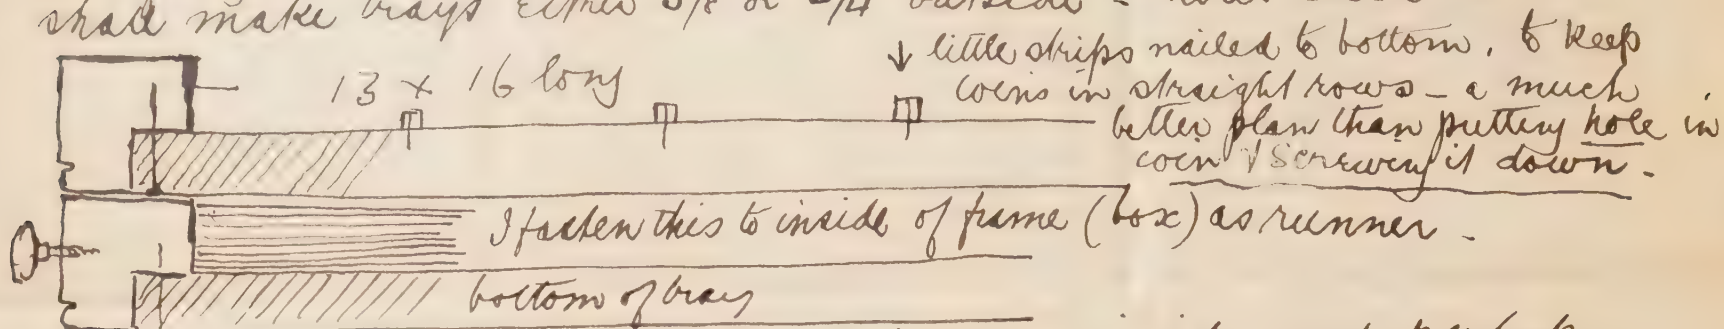 shall make trays either 5/8 or 3/4 outside -
13 x 16 long
↓ little strips nailed to bottom. to keep
coins in straight rows - a much
better plan than putting hole in
coin & screwing it down.
I fasten this to inside of frame (box) as runner -
bottom of tray